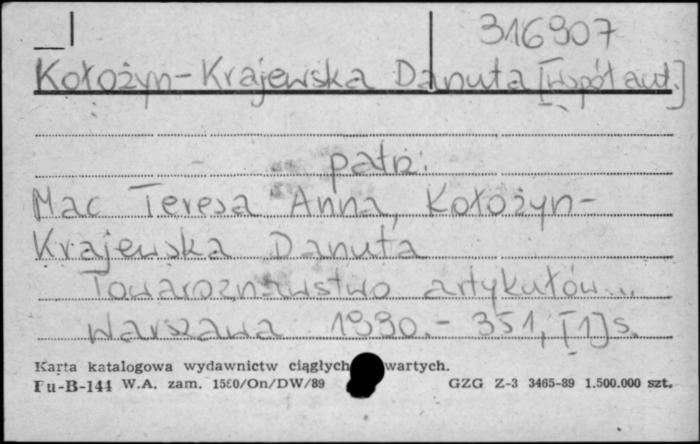 316907
Kołożyn-Krajewska Danuta [współaut.]
patrz:
Mac Teresa Anna, Kołożyn-
Krajewska Danuta
Towaroznawstwo artykułów...
Warszawa 1990.- 351, [1] s.
Karta katalogowa wydawnictw ciągłych wartych.
Pu-B-144 W.A. zam. 1580/On/DW/89 GZG Z-3 3465-89 1.500.000 szt.